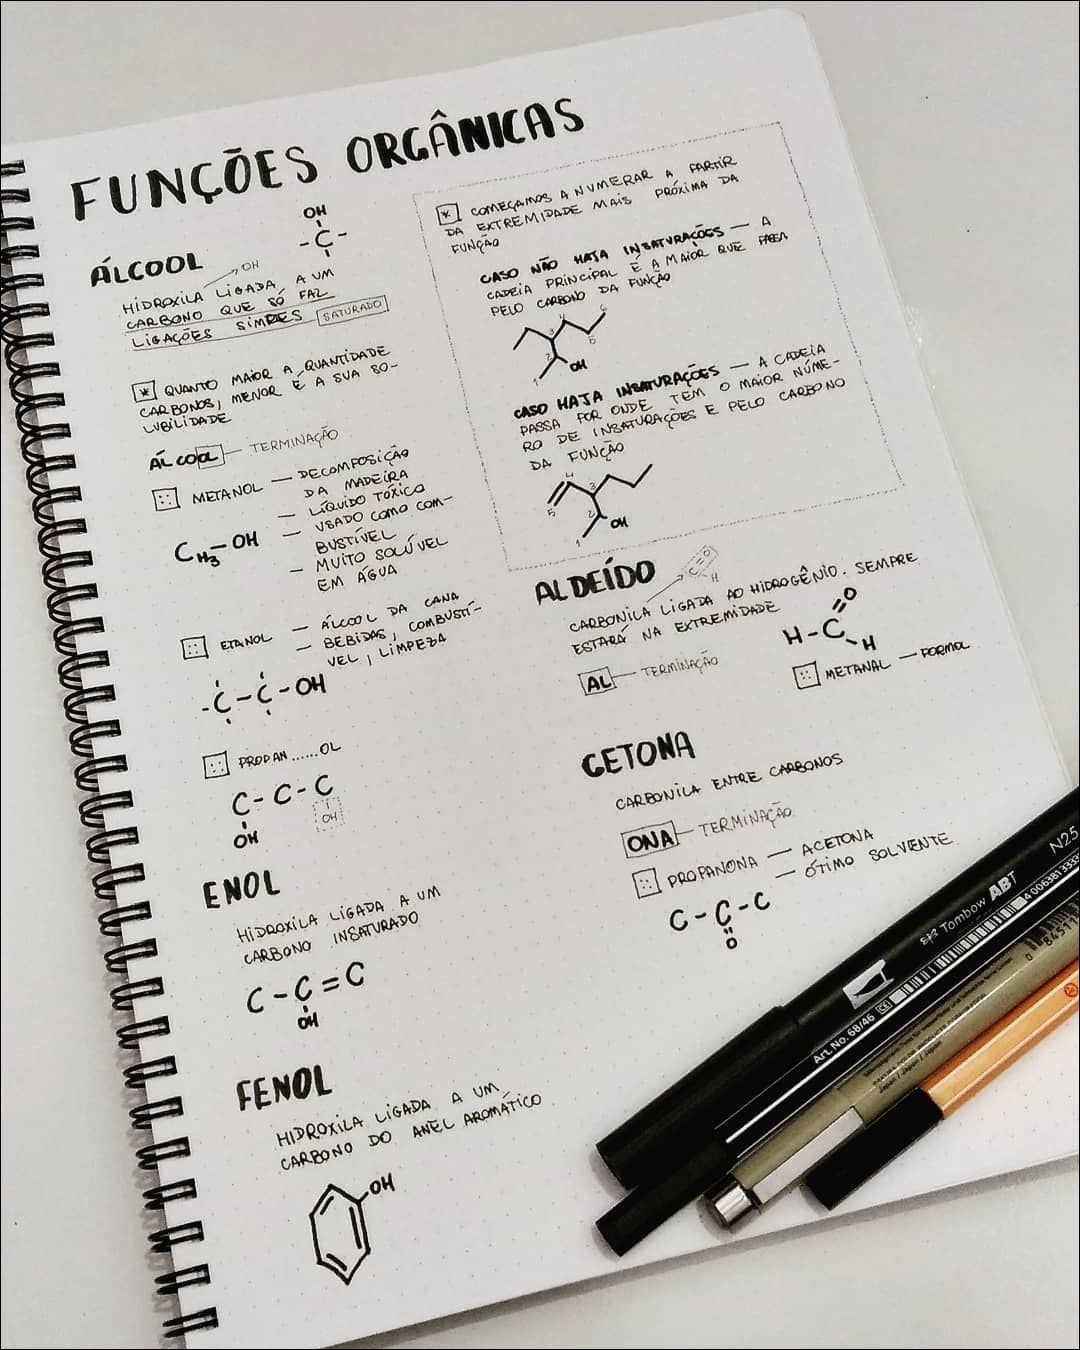 FUNÇÕES ORGÂNICAS
ÁLCOOL
OH
-C-
OH
HIDROXILA LIGADA A UM
CARBONO QUE SÓ FAZ
LIGAÇÕES SIMPLES SATURADO
* QUANTO MAIOR A QUANTIDADE
CARBONOS, MENOR É A SUA SO-
LUBILIDADE
ÁLCOOL — TERMINAÇÃO
METANOL — DECOMPOSIÇÃO
DA MADEIRA
— LÍQUIDO TÓXICO
— USADO COMO COM-
BUSTÍVEL
— MUITO SOLÚVEL
EM ÁGUA
CH3-OH
ETANOL — ÁLCOOL DA CANA
— BEBIDAS, COMBUSTÍ-
VEL, LIMPEZA
-C-C-OH
PROPAN......OL
C-C-C
OH
OH
ENOL
HIDROXILA LIGADA A UM
CARBONO INSATURADO
C-C=C
OH
FENOL
HIDROXILA LIGADA A UM
CARBONO DO ANEL AROMÁTICO
OH
* COMEÇAMOS A NUMERAR A PARTIR
DA EXTREMIDADE MAIS PRÓXIMA DA
FUNÇÃO
CASO NÃO HAJA INSATURAÇÕES — A
CADEIA PRINCIPAL É A MAIOR QUE PASSA
PELO CARBONO DA FUNÇÃO
6
4
3
5
2
OH
1
CASO HAJA INSATURAÇÕES — A CADEIA
PASSA POR ONDE TEM O MAIOR NÚME-
RO DE INSATURAÇÕES E PELO CARBONO
DA FUNÇÃO
4
3
5
2
OH
1
ALDEÍDO
C=O
H
CARBONILA LIGADA AO HIDROGÊNIO. SEMPRE
ESTARÁ NA EXTREMIDADE
AL — TERMINAÇÃO
O
H-C
H
METANAL — FORMOL
CETONA
CARBONILA ENTRE CARBONOS
ONA — TERMINAÇÃO
PROPANONA — ACETONA
— ÓTIMO SOLVENTE
C-C-C
O
Tombow ABT
N25
Art. No. 68/46 CE
4 006381 3333
0 84511
Japan / Japon / Japan